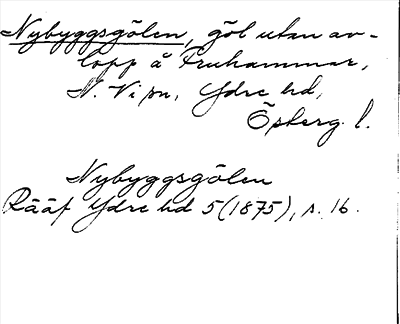 Nybyggsgölen, göl utan av-
lopp å Fruhammar,
N. Vi sn, Ydre hd,
Östergl.
Nybyggsgölen
Rääf Ydre hd 5(1875), s. 16.